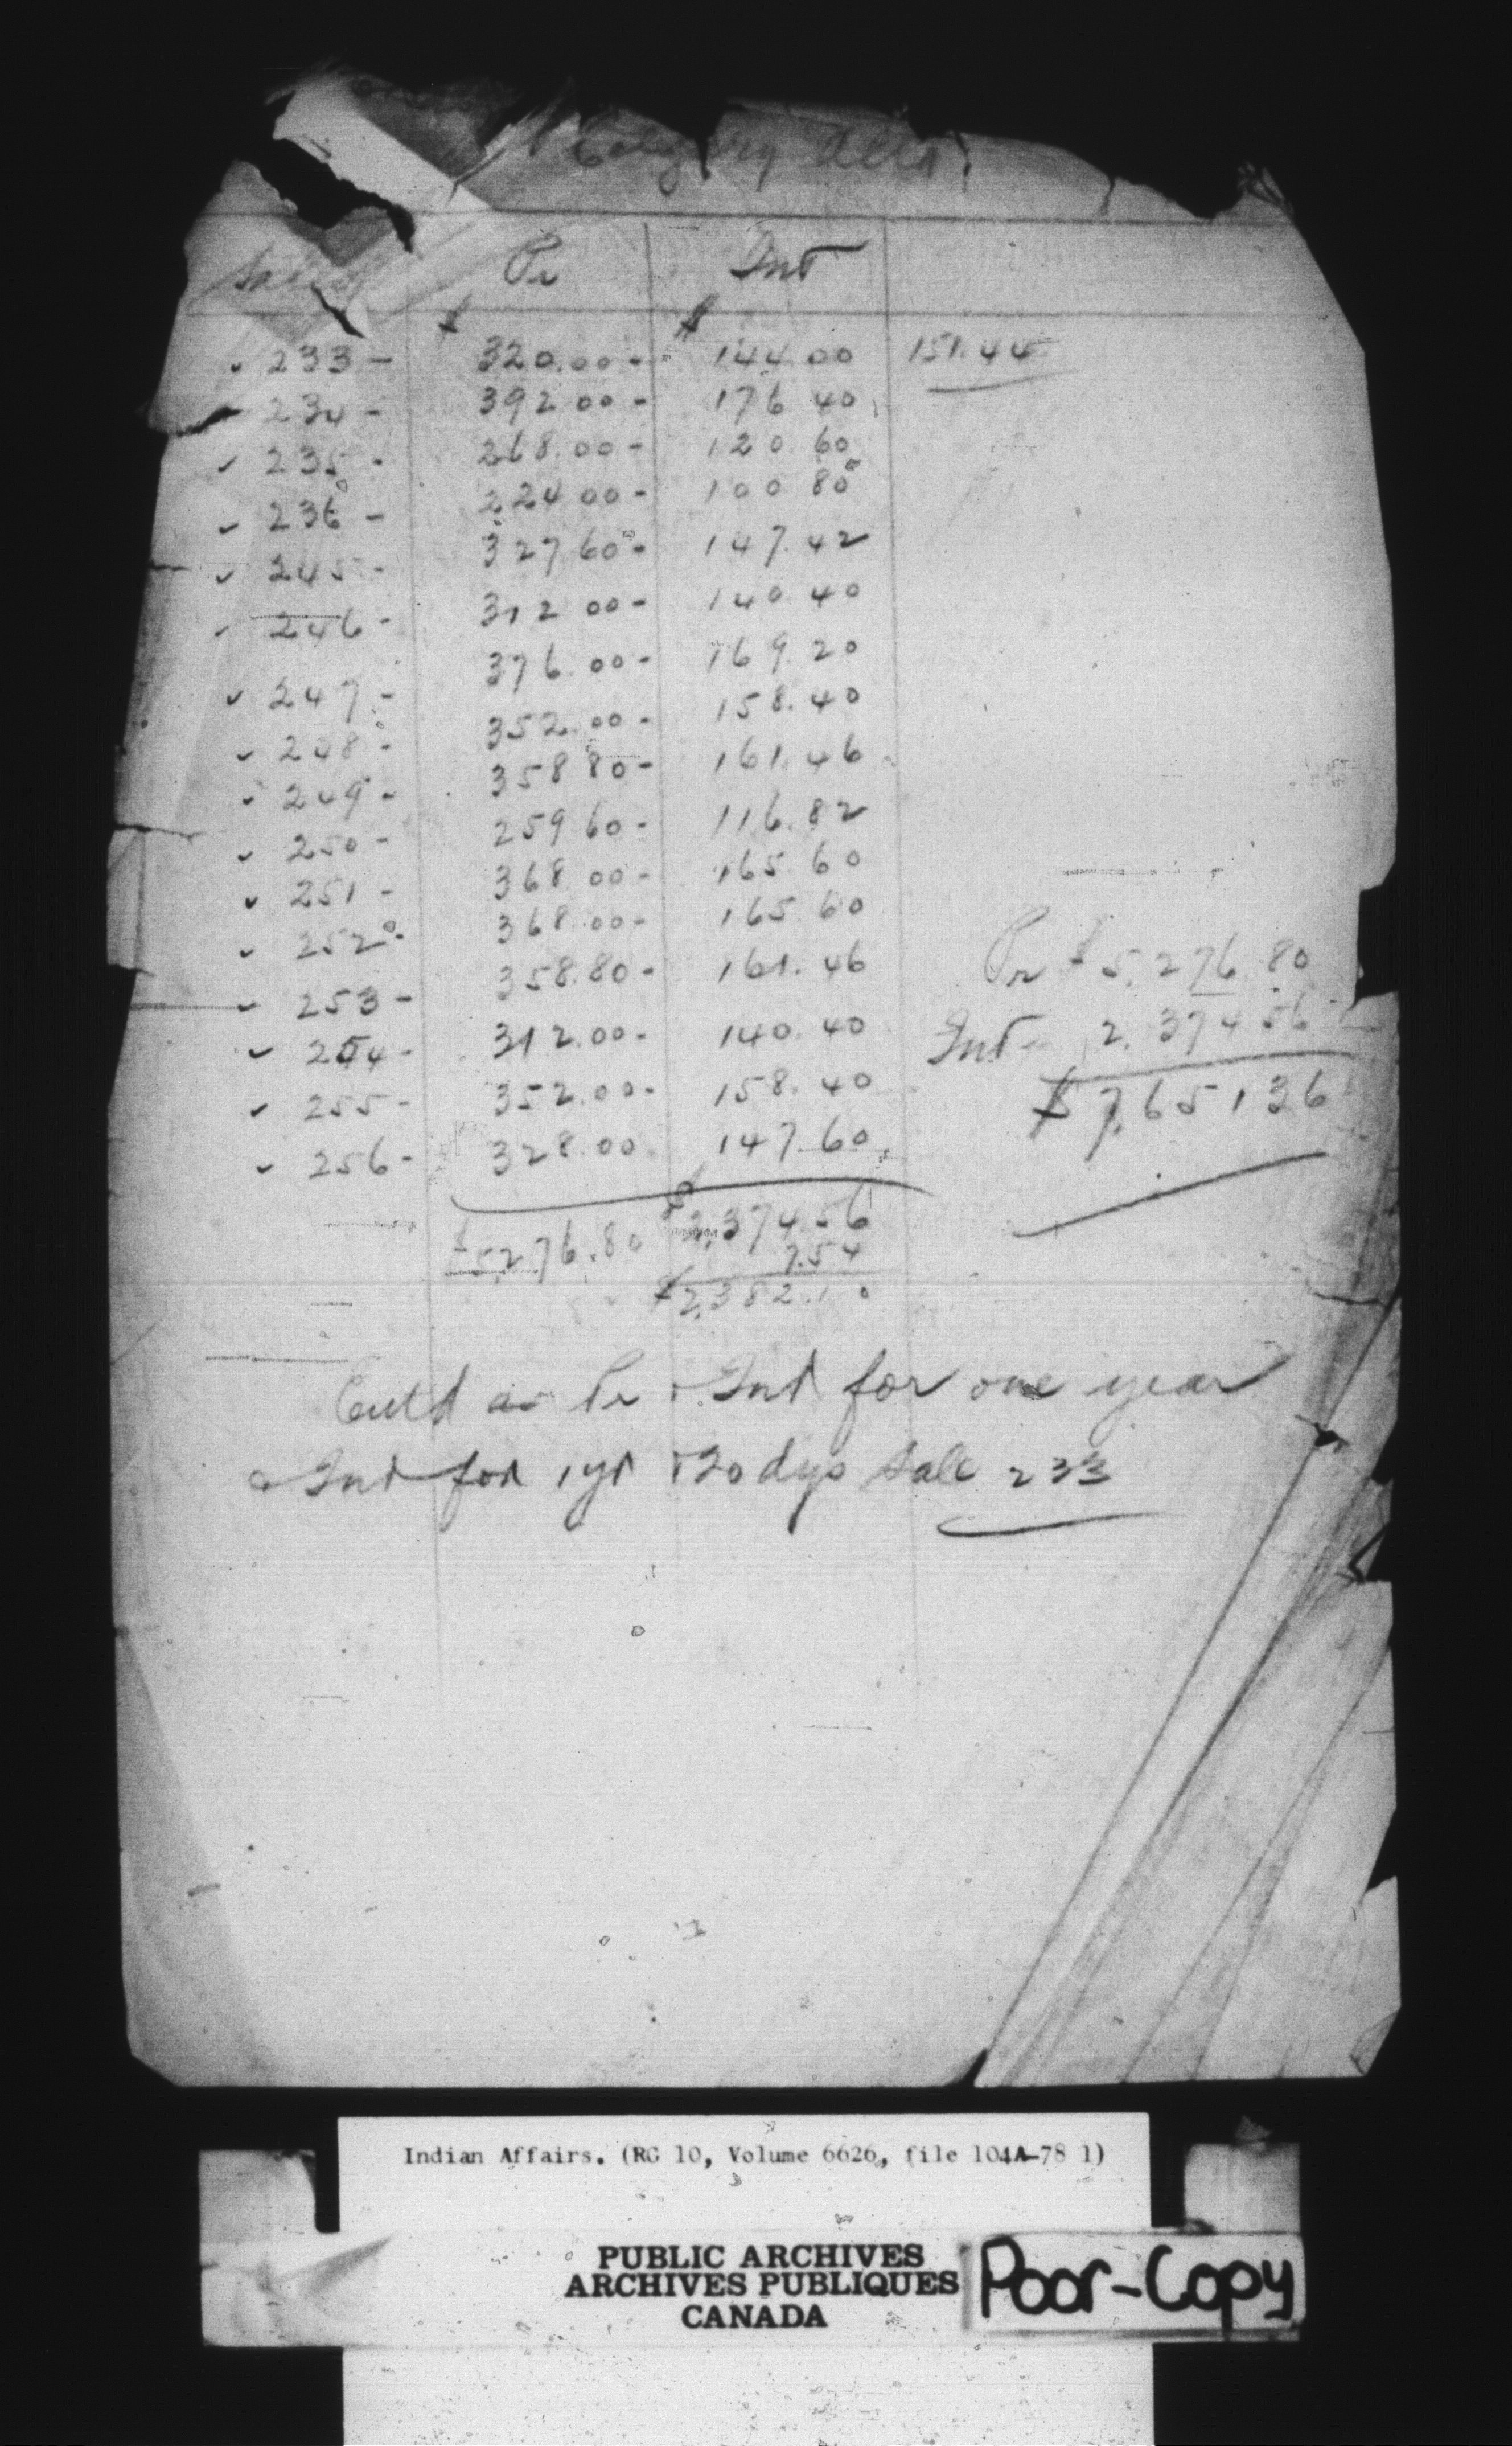 Calgary
Sales Pr Int
$ $
✓ 233 - 320.00 - 144 00 151.44
234 - 392 00 - 176 40
✓ 235 - 268.00 - 120 60
✓ 236 - 224 00 - 100 80
✓ 245 - 327 60 - 147.42
✓ 246 - 312 00 - 140 40
✓ 247 - 376.00 - 169.20
✓ 248 - 352.00 - 158.40
✓ 249 - 358 80 - 161.46
✓ 250 - 259 60 - 116.82
✓ 251 - 368 00 - 165 60
✓ 252 - 368.00 - 165 60
✓ 253 - 358.80 - 161.46
✓ 254 - 312.00 - 140.40
✓ 255 - 352.00 - 158.40
✓ 256 - 328.00 147.60
Pr $ 5,276.80
Int 2,374 56
$ 7,651 36
$5,276.80 $2,374.56
7.54
$2,382.10
as Pr + Int for one year
Int for 1 yr + 20 dys Sale 233
Indian Affairs. (RG 10, Volume 6626, file 104A-78 1)
PUBLIC ARCHIVES
ARCHIVES PUBLIQUES
CANADA
Poor-Copy